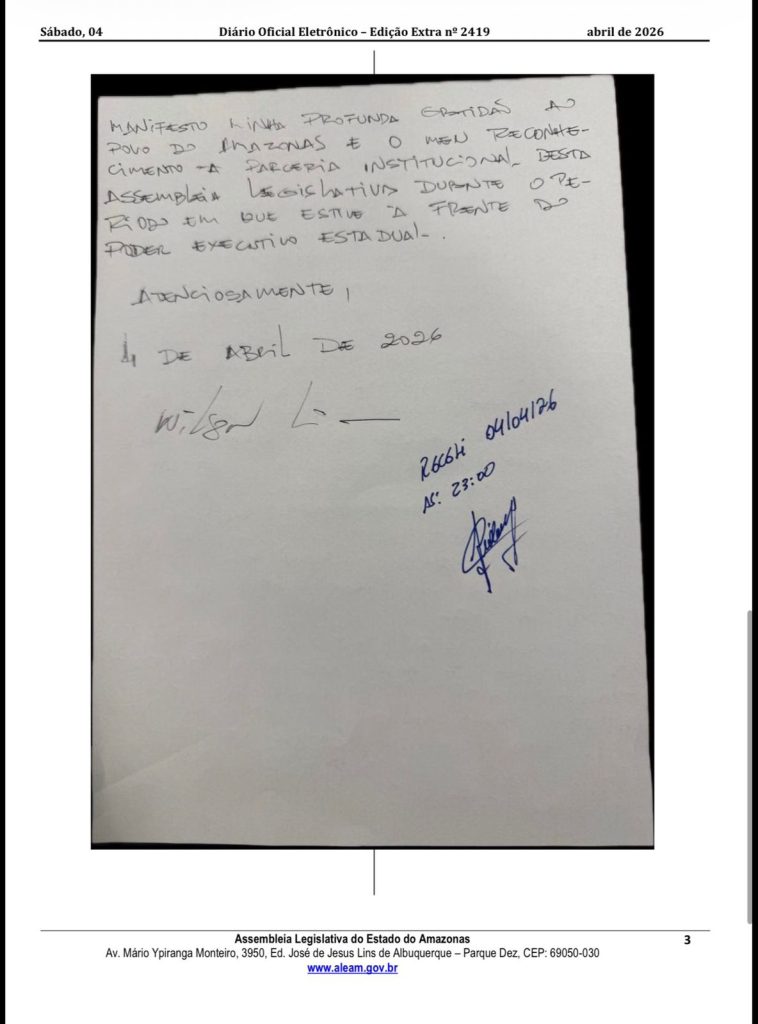 Sábado, 04 Diário Oficial Eletrônico – Edição Extra nº 2419 abril de 2026
MANIFESTO MINHA PROFUNDA GRATIDÃO AO
POVO DO AMAZONAS E O MEU RECONHE-
CIMENTO À PARCERIA INSTITUCIONAL DESTA
ASSEMBLEIA LEGISLATIVA DURANTE O PE-
RÍODO EM QUE ESTIVE À FRENTE DO
PODER EXECUTIVO ESTADUAL.
ATENCIOSAMENTE,
4 DE ABRIL DE 2026
Wilson Li
Recebi 04/04/26
ÀS: 23:00
Assembleia Legislativa do Estado do Amazonas 3
Av. Mário Ypiranga Monteiro, 3950, Ed. José de Jesus Lins de Albuquerque – Parque Dez, CEP: 69050-030
www.aleam.gov.br